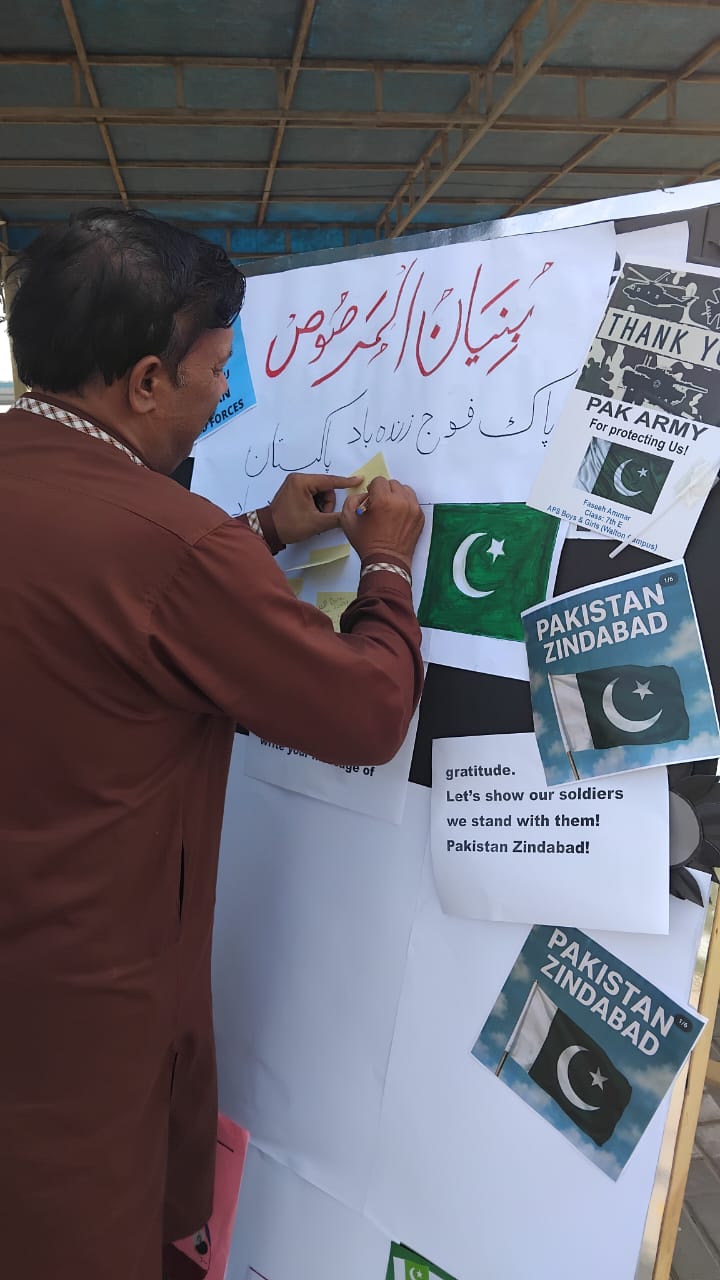 بُنیَانُ المَرصُوصُ
پاک فوج زندہ باد پاکستان
FORCES
THANK
PAK ARMY
For protecting Us!
Faseeh Ammar
Class: 7th E
APS Boys & Girls (Walton Campus)
1/6
PAKISTAN
ZINDABAD
write your message of
gratitude.
Let's show our soldiers
we stand with them!
Pakistan Zindabad!
PAKISTAN
ZINDABAD
1/6